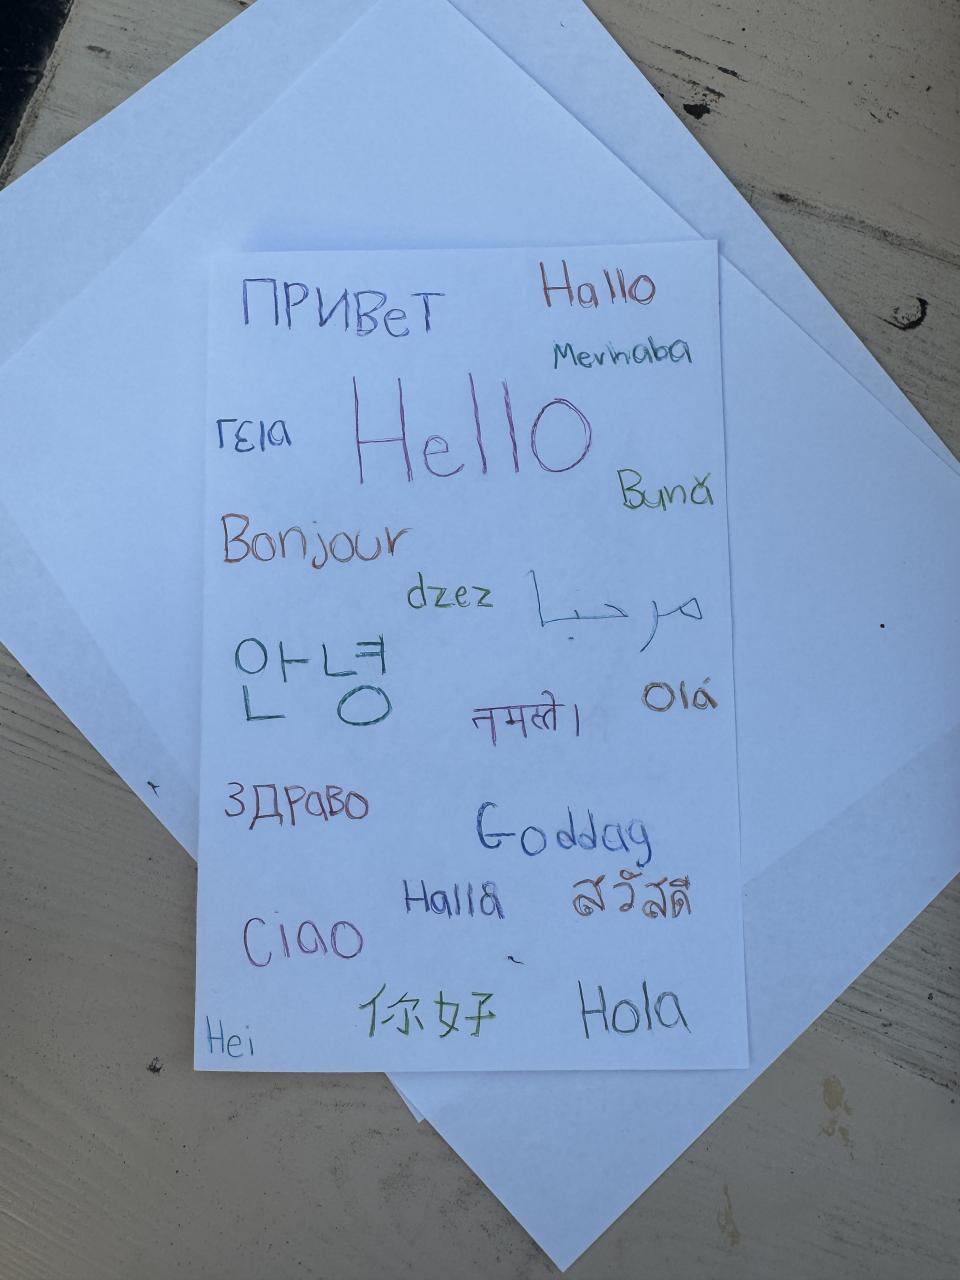 ПРИВеТ
Hallo
Merhaba
Hello
Γεια
Bună
Bonjour
dzez
مرحبا
안녕
Olá
नमस्ते।
ЗДРаВО
Goddag
Hallå
สวัสดี
Ciao
你好
Hola
Hei